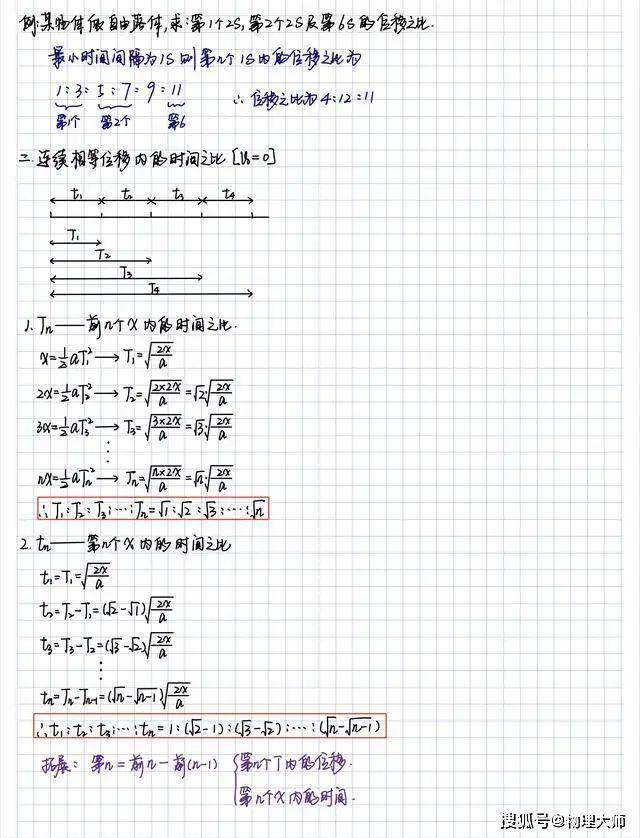 例:某物体做自由落体,求:第1个2S,第2个2S及第6S的位移之比.
最小时间间隔为1S 则第n个1S内的位移之比为
1:3:5:7=9:11
∴位移之比为4:12:11
第1个 第2个 第6
二.连续相等位移内的时间之比[V₀=0]
t₁ t₂ t₃ t₄
T₁
T₂
T₃
T₄
1.Tn——前n个X内的时间之比.
X=½aT₁²→T₁=√(2X/a)
2X=½aT₂²→T₂=√(2×2X/a)=√2√(2X/a)
3X=½aT₃²→T₃=√(3×2X/a)=√3√(2X/a)
⋮
nX=½aTn²→Tn=√(n×2X/a)=√n√(2X/a)
∴T₁:T₂:T₃:…:Tn=√1:√2:√3:…:√n
2.tn——第n个X内的时间之比
t₁=T₁=√(2X/a)
t₂=T₂-T₁=(√2-√1)√(2X/a)
t₃=T₃-T₂=(√3-√2)√(2X/a)
⋮
tn=Tn-Tn-1=(√n-√n-1)√(2X/a)
∴t₁:t₂:t₃:…:tn=1:(√2-1):(√3-√2):…:(√n-√n-1)
拓展:第n=前n-前(n-1) {第n个T内的位移.
第n个X内的时间.
搜狐号@物理大师